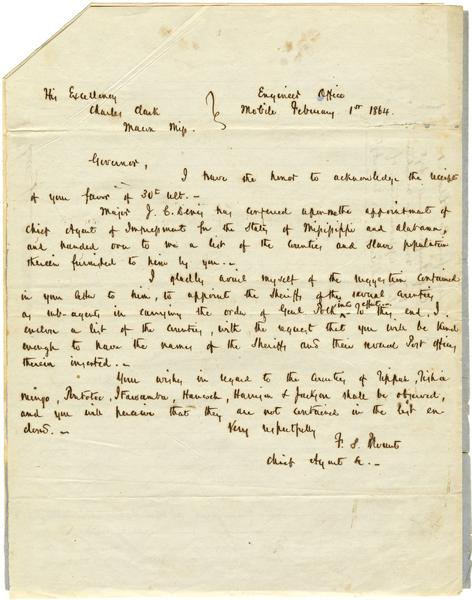 His Excellency Engineer Office
Charles Clark Mobile February 1st 1864.
Macon Miss.
Governor,
I have the honor to acknowledge the receipt
of your favor of 30th ult. -
Major J. C. Denis has conferred upon me the appointment of
Chief Agent of Impressment for the States of Mississippi and Alabama,
and handed over to me a list of the Counties and Slave population
therein furnished to him by you. -
I gladly avail myself of the suggestion contained
in your letter to him, to appoint the Sheriffs of the several Counties,
as sub-agents in carrying the order of Genl Polk into effect - To this end, I
enclose a list of the Counties, with the request that you will be kind
enough to have the names of the Sheriffs and their several Post offices
therein inserted. -
Your wishes in regard to the Counties of Tippah, Tisho
mingo, Pontotoc, Itawamba, Hancock, Harrison & Jackson shall be observed,
and you will perceive that they are not contained in the list en
closed. -
Very respectfully
F. S. Blount
Chief Agent &c. -